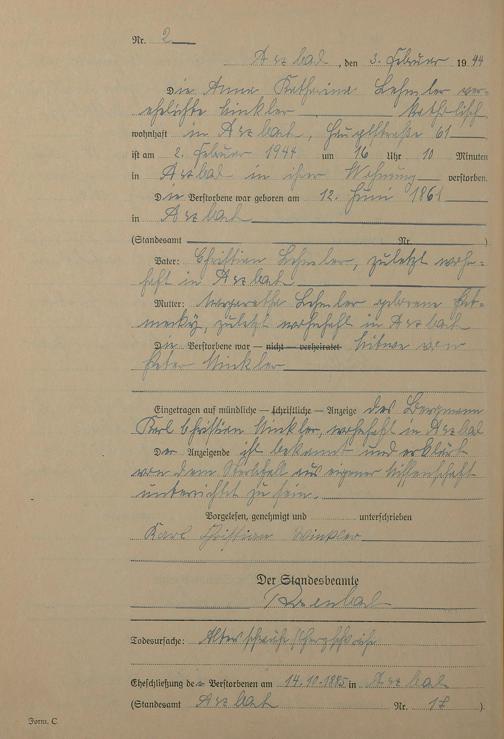 Nr. 2
Arzbach, den 3. Februar 1944
Die Anna Katharina Lehmler ver-
ehelichte Winkler katholisch
wohnhaft in Arzbach, Hauptstraße 61
ist am 2. Februar 1944 um 16 Uhr 10 Minuten
in Arzbach in ihrer Wohnung verstorben.
Die Verstorbene war geboren am 12. Juni 1861
in Arzbach
(Standesamt Nr. )
Vater: Christian Lehmler, zuletzt wohn-
haft in Arzbach
Mutter: Margaretha Lehmler geborene
zuletzt wohnhaft in Arzbach
Die Verstorbene war — nicht — verheiratet Witwe von
Peter Winkler
Eingetragen auf mündliche — schriftliche — Anzeige des Bergmann
Karl Christian Winkler, wohnhaft in Arzbach
Der Anzeigende ist bekannt und erklärt
von dem Sterbfall aus eigener Wissenschaft
unterrichtet zu sein.
Vorgelesen, genehmigt und unterschrieben
Karl Christian Winkler
Der Standesbeamte
Todesursache: Altersschwäche, Herzschwäche
Eheschließung der Verstorbenen am 14.10.1885 in Arzbach
(Standesamt Arzbach Nr. 17 ).
Form. C.